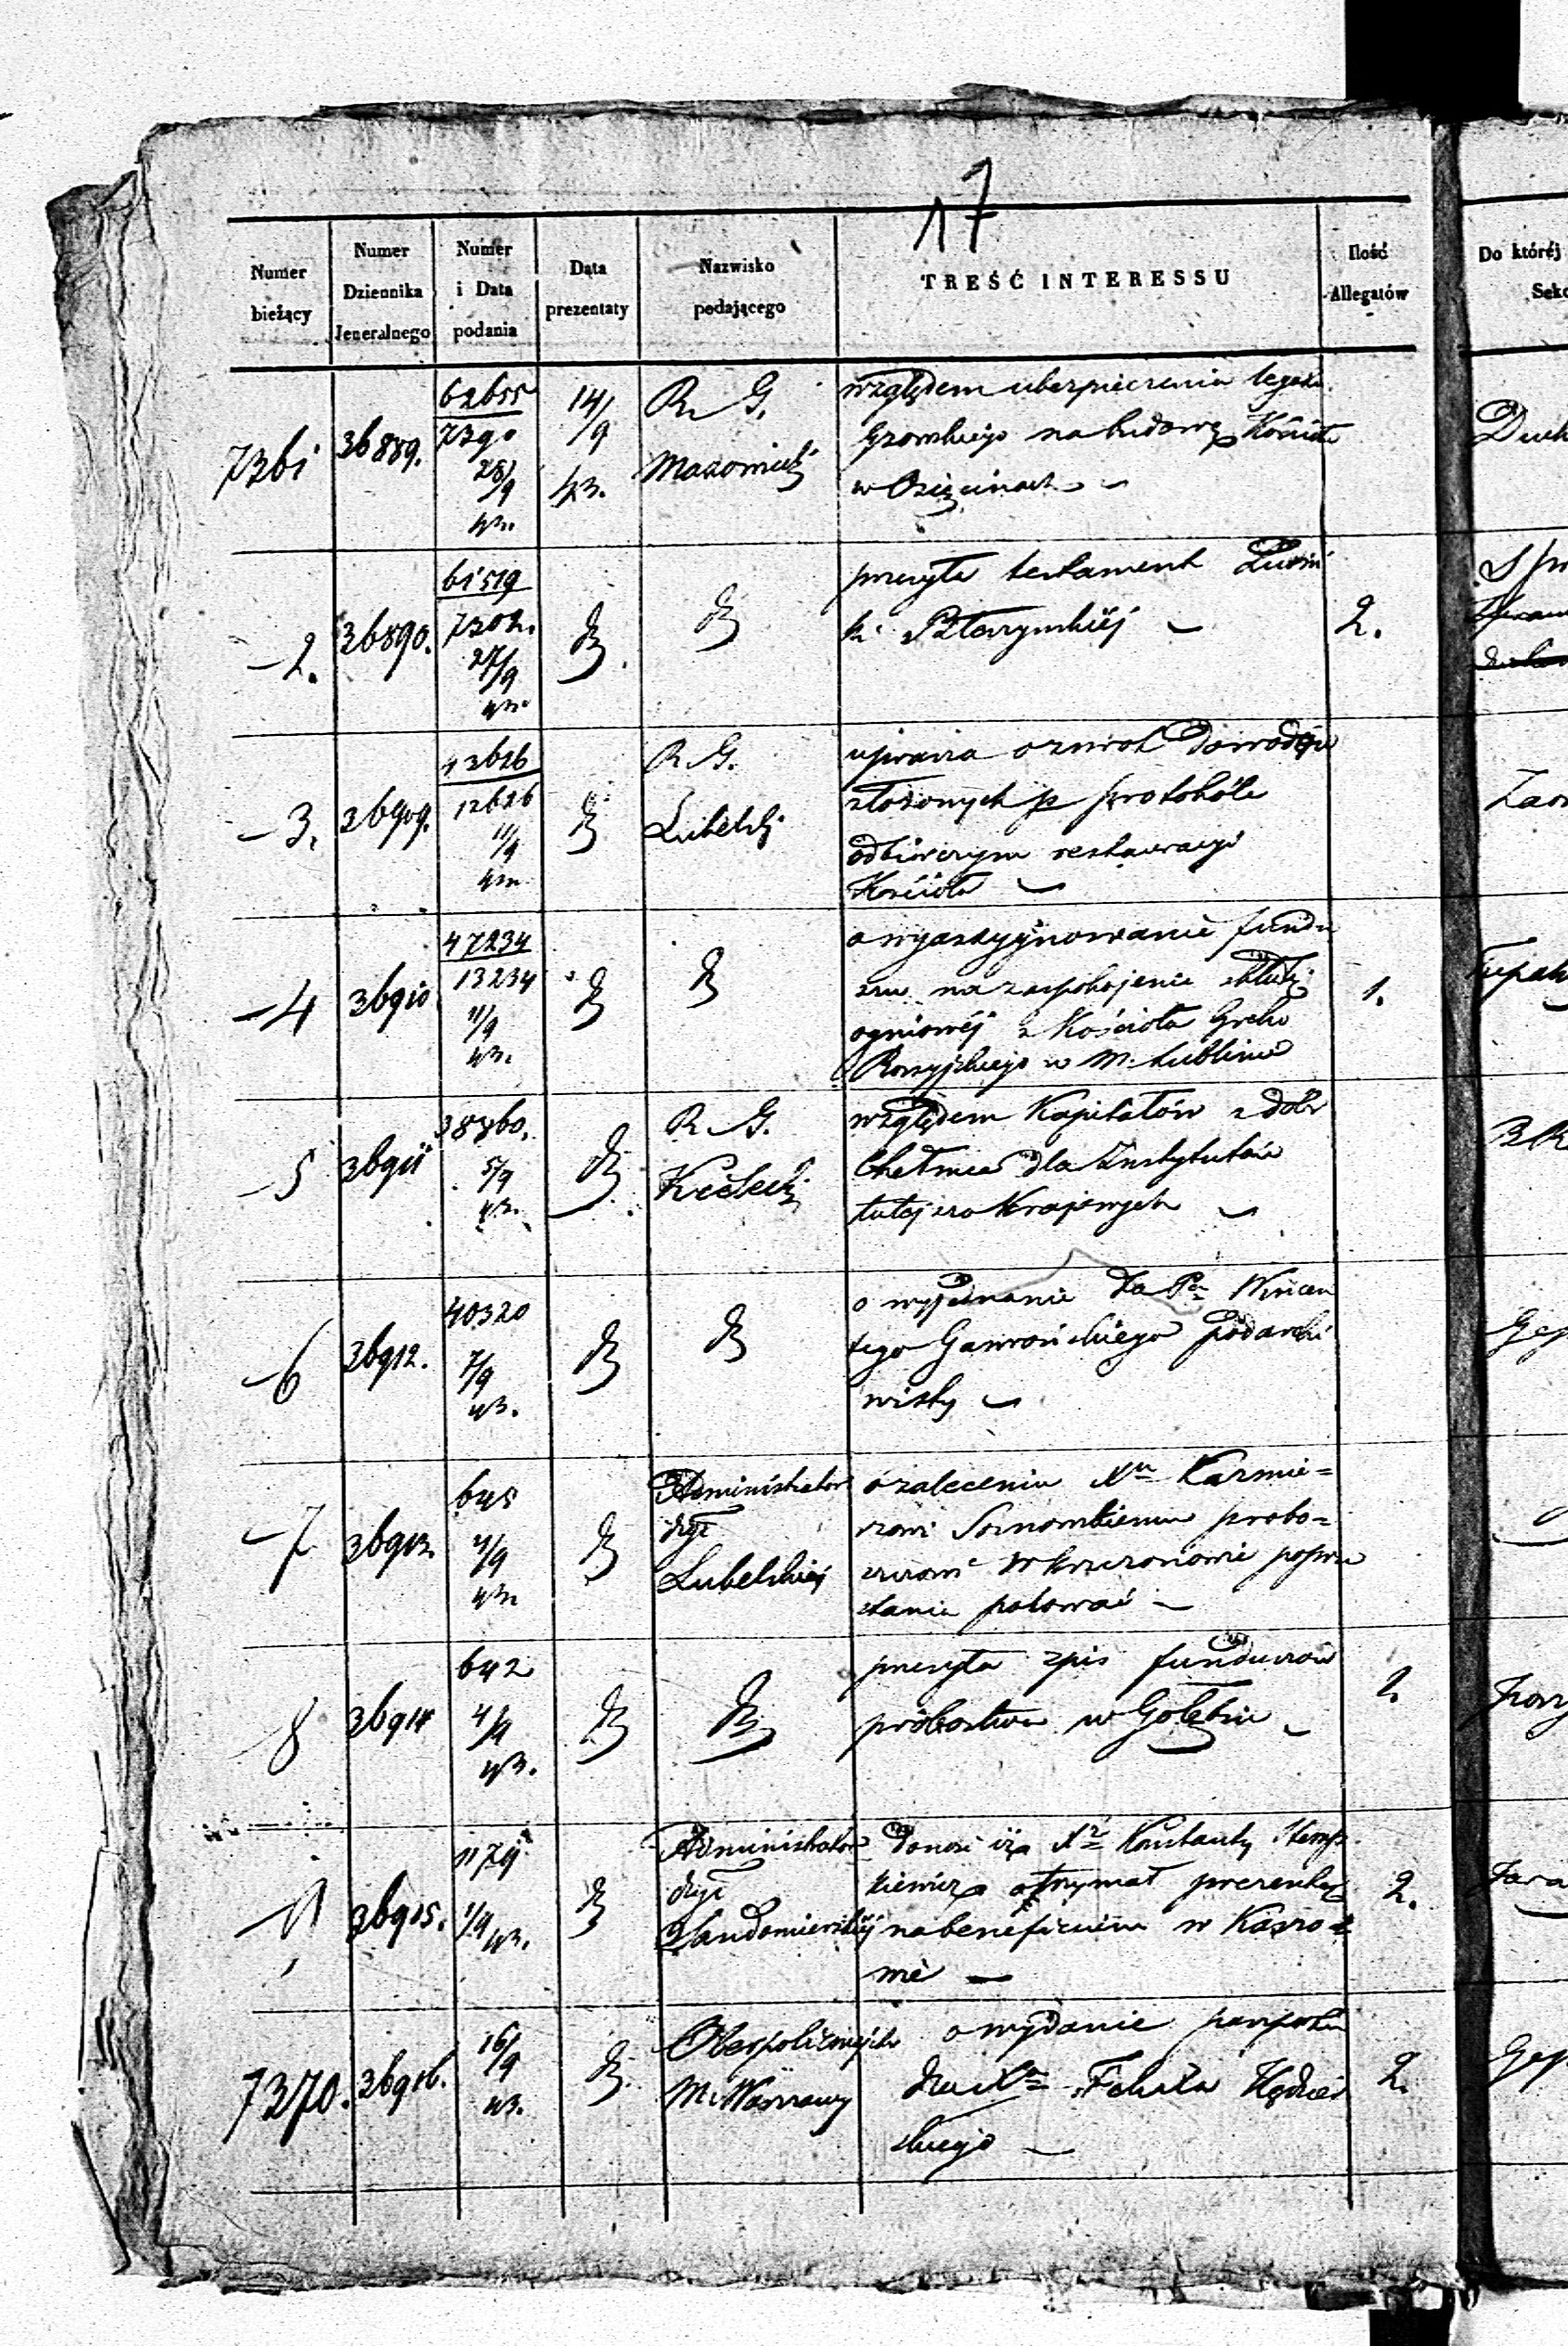 17
Numer bieżący
Numer Dziennika Jeneralnego
Numer i Data podania
Data prezentaty
Nazwisko podającego
TREŚĆ INTERESSU
Ilość Allegatów
Do której
Sek
7361
36889.
62655
7390
28/9
43.
14/9
43.
R. G.
Mazowiecki
względem ubezpieczenia legatu
na budowę Kościoła
w Osięcinach
Duch
-2.
36890.
61519
7302.
27/9
43.
przesyła testament
2.
-3.
36909.
43626
12626
11/9
43.
R. G.
Lubelski
uprasza o zwrot Dowodów
złożonych p protokóle
odbiorczym restauracyi
Kościoła
-4
36910
47234
13234
11/9
43.
o wyassygnowanie fundu
szu na zaspokojenie składki
ogniowéj z Kościoła Greko
Rossyjskiego w M. Lublinie
1.
-5
36911
38760.
5/9
43.
R. G.
Kielecki
względem Kapitałów z dóbr
Chełmca dla Instytutów
tutejszo Krajowych
-6
36912.
40320
7/9
43.
o wyjednanie dla Pa Wincen
tego Gawrońskiego
-7
36913.
645
4/9
43.
Administrator
dyec
Lubelskiej
o zaleceniu Xu Kazmie=
rzowi Sosnowskiemu probo=
szczowi w Krzczonowie
8
36914
642
4/9
43.
przesyła spis funduszów
probostwa w Gołębiu
2
9
36915.
1179
1/9
43.
Administrator
dyec
Sandomierskiéj
Donosi iż Xr Konstanty
otrzymał prezentę
na beneficium w Kazno=
wie
2.
7370.
36916.
16/9
43.
Oberpolicmajster
M. Warszawy
o wydanie paszportu
dla Xa Felixa
skiego
2.